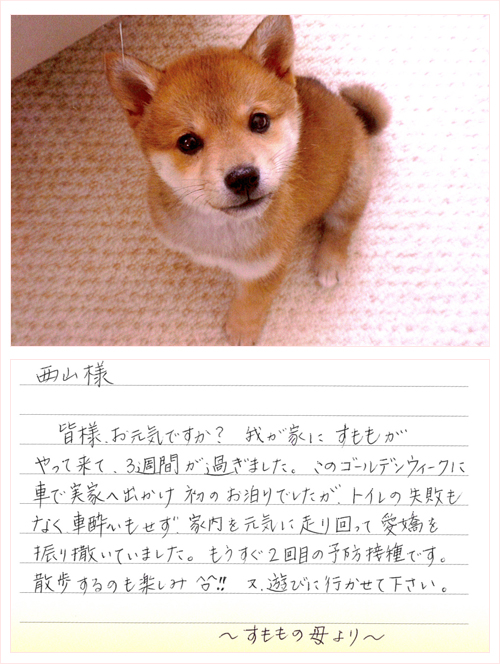 西山様
皆様、お元気ですか？ 我が家に すももが
やって来て、3週間が過ぎました。このゴールデンウィークに
車で実家へ出かけ 初のお泊りでしたが、トイレの失敗も
なく、車酔いもせず、家内を元気に走り回って 愛嬌を
振り撒いていました。もうすぐ2回目の予防接種です。
散歩するのも楽しみ ^^!! 又、遊びに行かせて下さい。
〜すももの母より〜